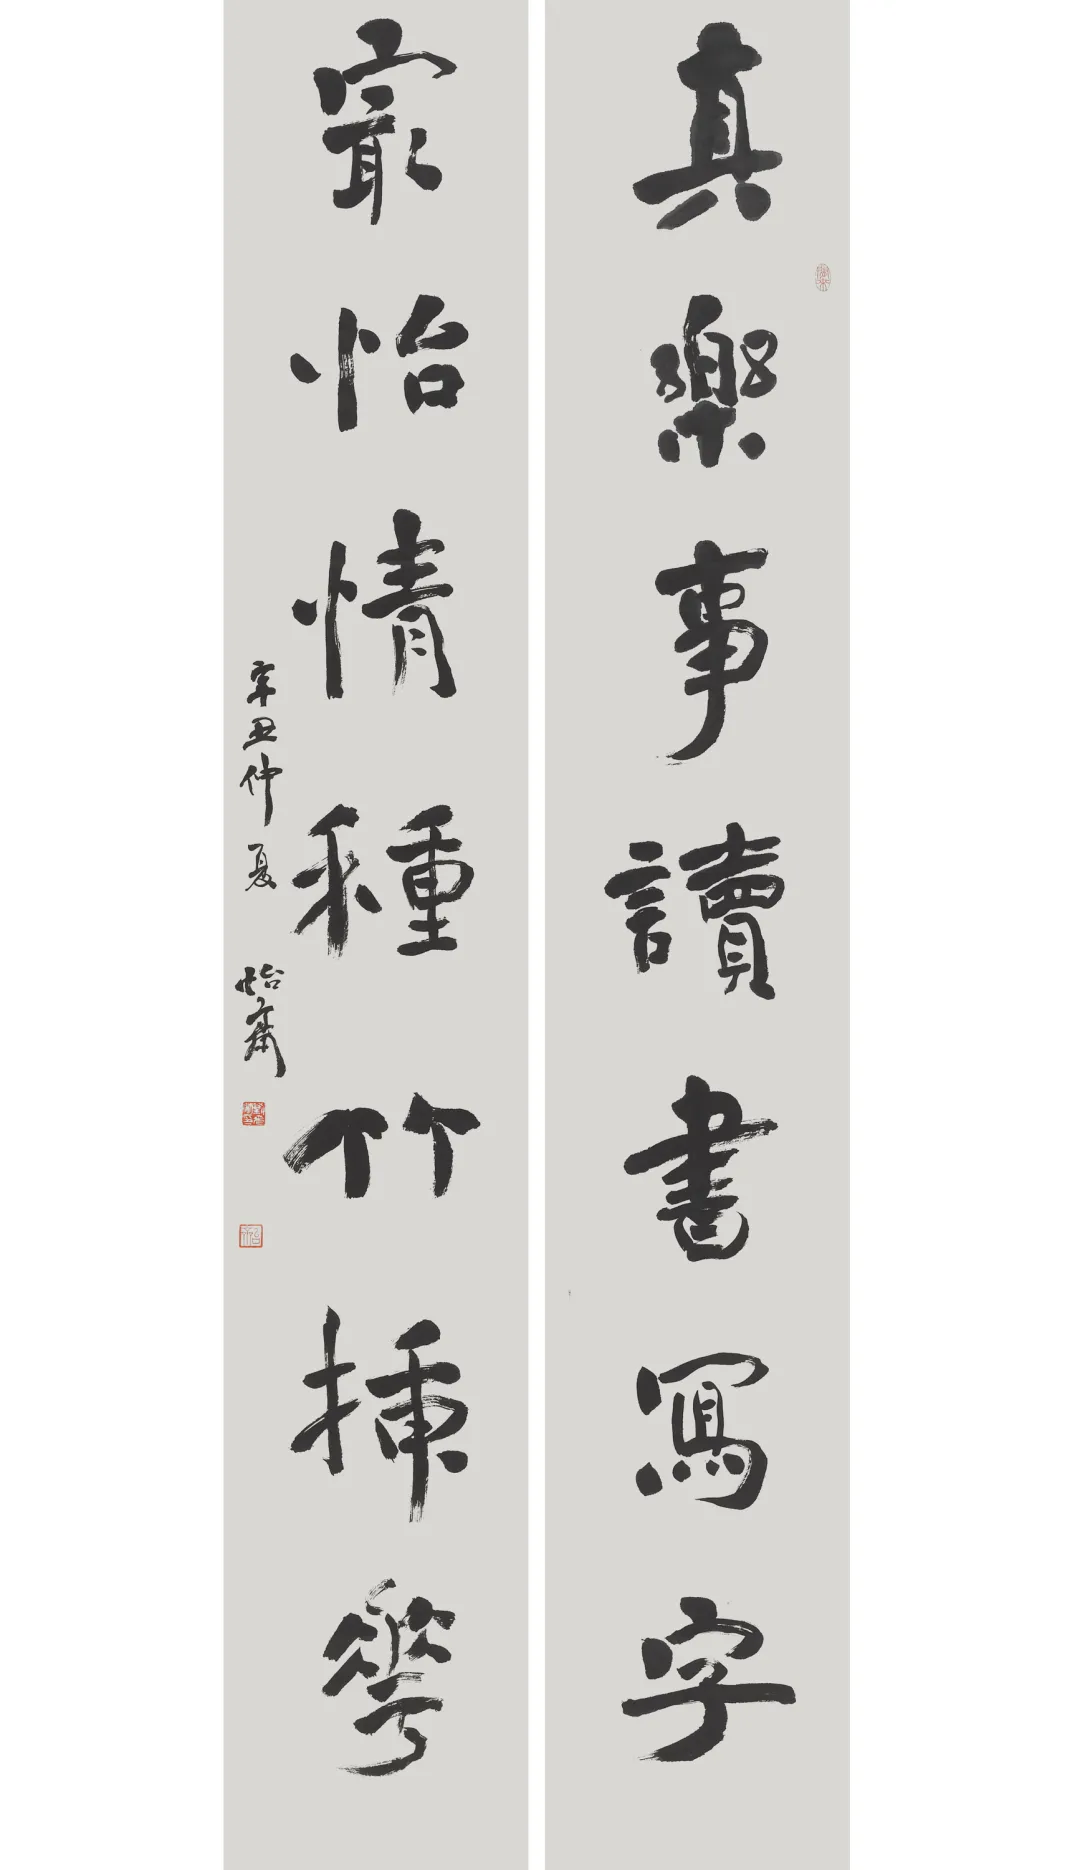 真樂事讀書寫字
冣怡情種竹插華
辛丑仲夏 怡齋